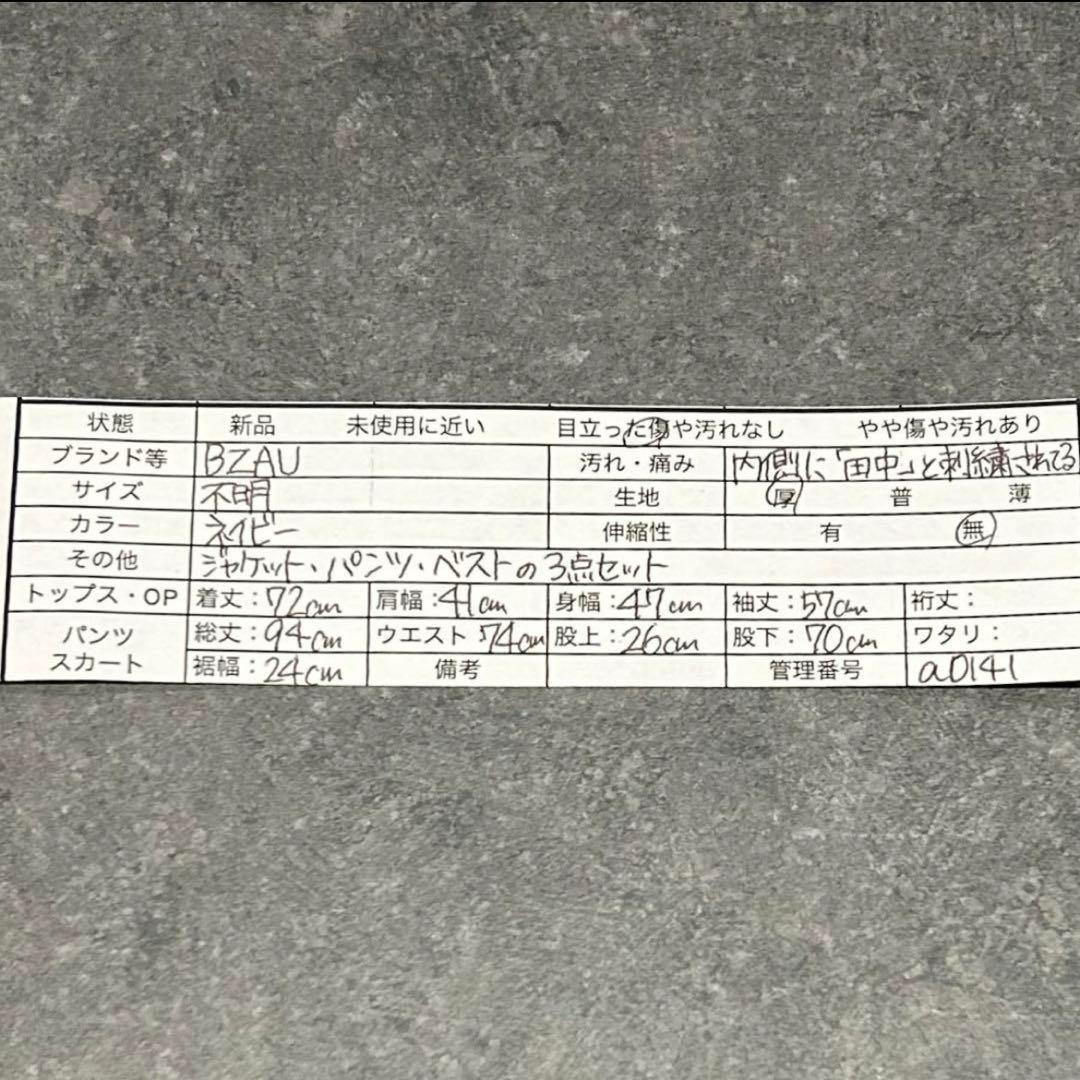 状態 新品 未使用に近い 目立った傷や汚れなし やや傷や汚れあり
ブランド等 BZAU 汚れ・痛み 内側に「田中」と刺繍されてる
サイズ 不明 生地 厚 普 薄
カラー ネイビー 伸縮性 有 無
その他 ジャケット・パンツ・ベストの3点セット
トップス・OP 着丈:72cm 肩幅:41cm 身幅:47cm 袖丈:57cm 裄丈:
パンツ スカート 総丈:94cm ウエスト 74cm 股上:26cm 股下:70cm ワタリ:
裾幅:24cm 備考 管理番号 a0141